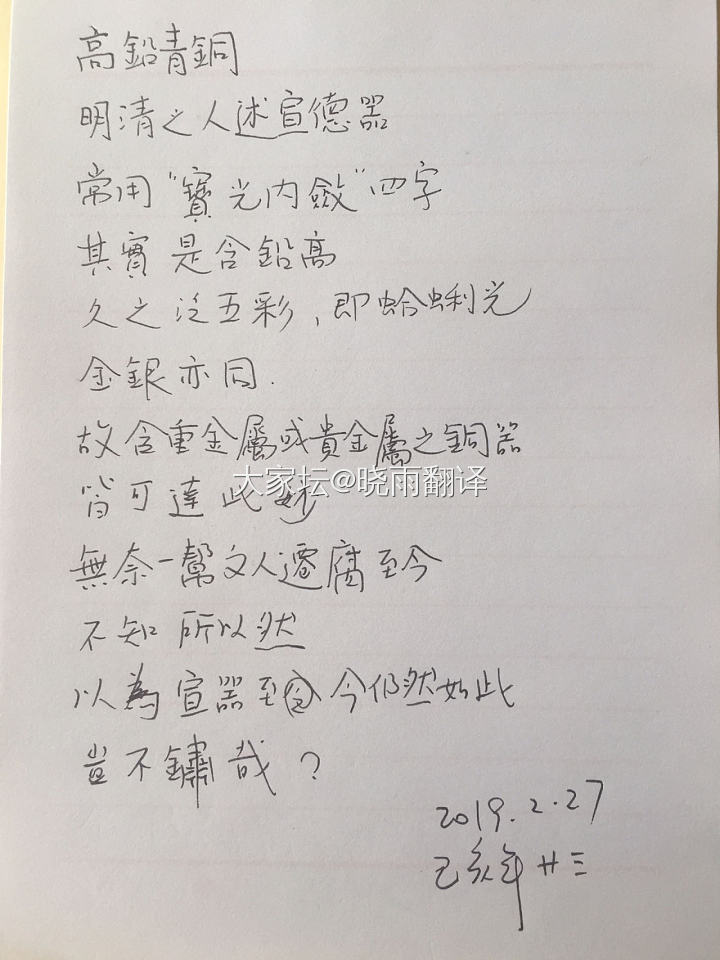 高鉛青銅
明清之人述宣德器
常用“寶光内斂”四字
其實是含鉛高
久之泛五彩，即蛤蜊光
金銀亦同.
故含重金屬或貴金屬之銅器
大家坛@晓雨翻译
皆可達此妙
無奈一幫文人遷腐至今
不知所以然
以為宣器至今仍然如此
豈不鏽哉？
2019.2.27
己亥年廿三